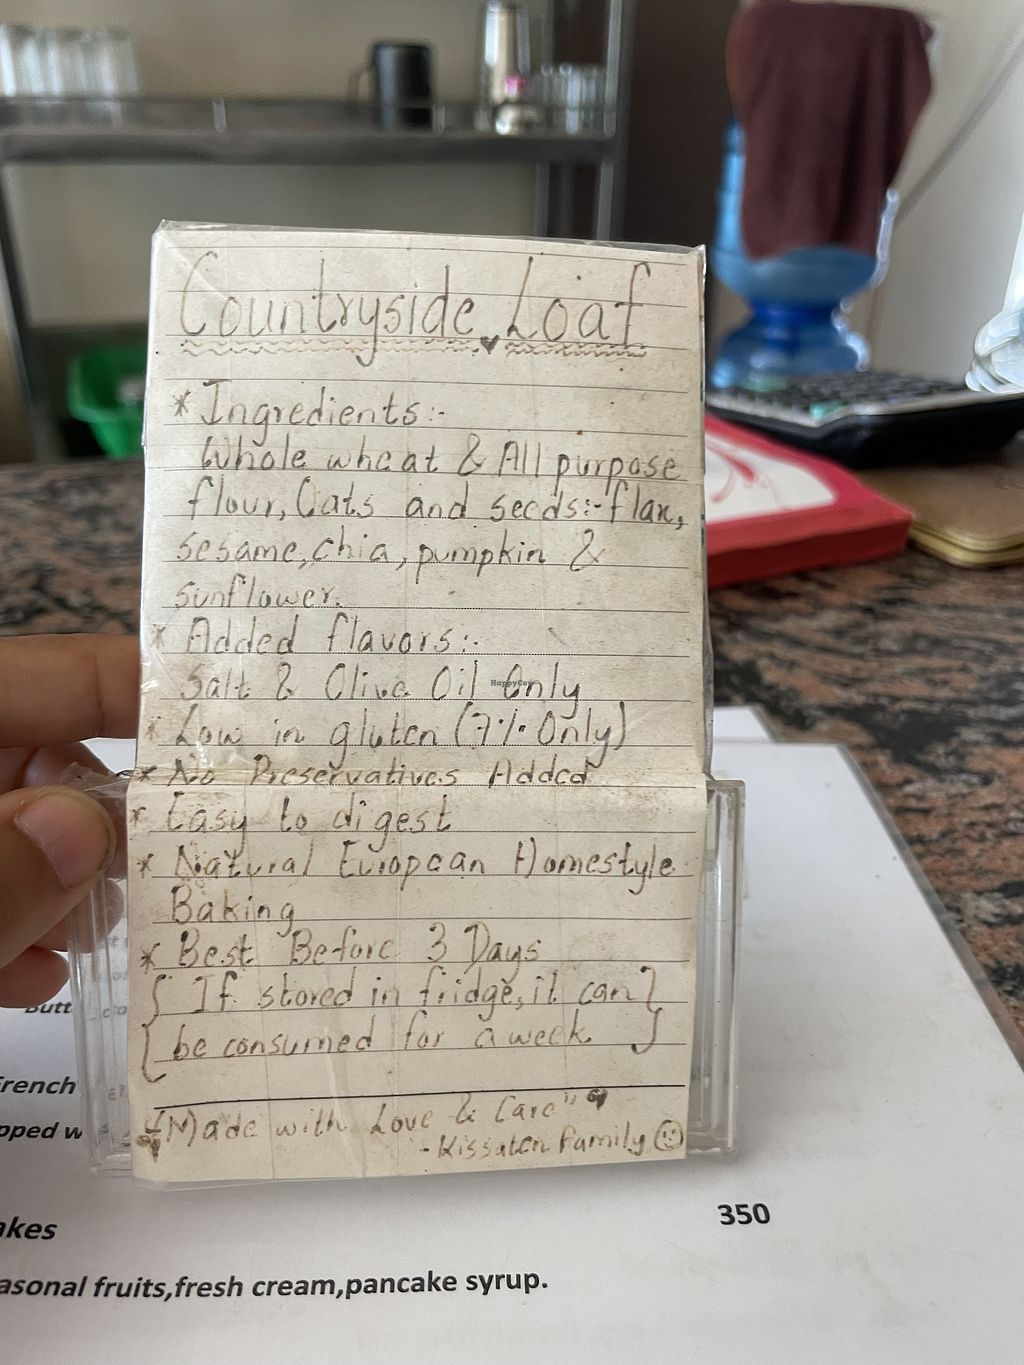 Countryside Loaf
* Ingredients:-
Whole wheat & All purpose
flour, Oats and seeds:- flax,
sesame, chia, pumpkin &
sunflower.
* Added flavors:-
Salt & Olive Oil Only
* Low in gluten (7% Only)
* No Preservatives Added
* Easy to digest
* Natural European Homestyle
Baking
* Best Before 3 Days
{ If stored in fridge, it can }
{ be consumed for a week. }
"Made with Love & Care"
- Kissaten Family
HappyCow
Butt
French
pped w
akes 350
asonal fruits,fresh cream,pancake syrup.